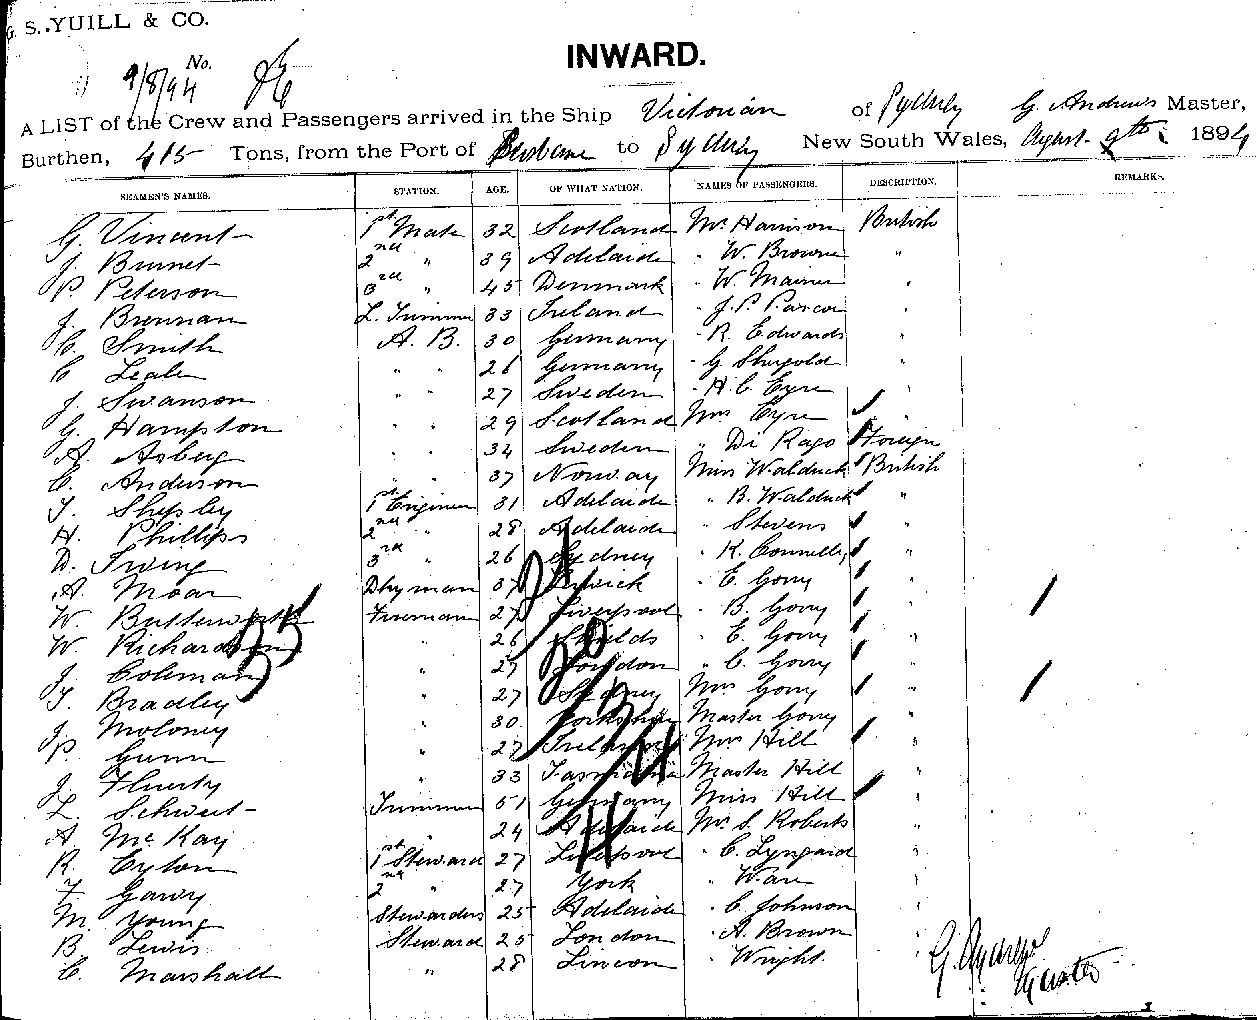 G. S. YUILL & CO.
INWARD.
No.
9/8/94
A LIST of the Crew and Passengers arrived in the Ship Victorian of Sydney G. Andrews Master,
Burthen, 415 Tons, from the Port of Brisbane to Sydney New South Wales, August 9th 1894
SEAMEN'S NAMES. STATION. AGE. OF WHAT NATION. NAMES OF PASSENGERS. DESCRIPTION. REMARKS.
G. Vincent 1st Mate 32 Scotland Mr Harrison British
J. Burnet 2nd " 39 Adelaide " W. Browne "
P. Peterson 3rd " 45 Denmark " W. Mainer "
J. Brennan L. Trimmer 33 Ireland " J. P. Pascoe "
C. Smith A. B. 30 Germany " R. Edwards "
C Leale " " 26 Germany " G. Shugold "
J. Swanson " " 27 Sweden " H. C. Eyre "
G. Hampton " " 29 Scotland Mrs Eyre "
A. Asberg " " 34 Sweden " Di Rago Foreign
C. Anderson " " 37 Norway Miss Walduck British
T. Shepley 1st Engineer 31 Adelaide " B. Walduck "
H. Phillips 2nd " 28 Adelaide " Stevens "
D. Ewing 3rd " 26 Sydney " K. Connelly "
A. Moar Dkyman 37 Lerwick " E. Gorry "
W. Butterworth Fireman 27 Liverpool " B. Gorry "
W. Richardson " 26 Shields " E. Gorry "
J. Coleman " 27 London " C. Gorry "
T. Bradley " 27 Sydney Mrs Gorry "
J. Moloney " 30 Yorkshire Master Gorry "
P. Gunn " 27 Ireland Mrs Hill "
J. Fluerty " 33 Tasmania Master Hill "
L. Schweit Trimmer 51 Germany Miss Hill "
A McKay " 24 Adelaide Mr S. Roberts "
R. Cyton 1st Steward 27 Liverpool " C. Lyngard "
F Garry 2nd " 27 York " Ware "
M. Young Stewardess 25 Adelaide " C. Johnson "
B. Lewis Steward 25 London " A. Brown "
C. Marshall " 28 Lincon " Wright.
33
21
20
13
14
G. Andrews
Master